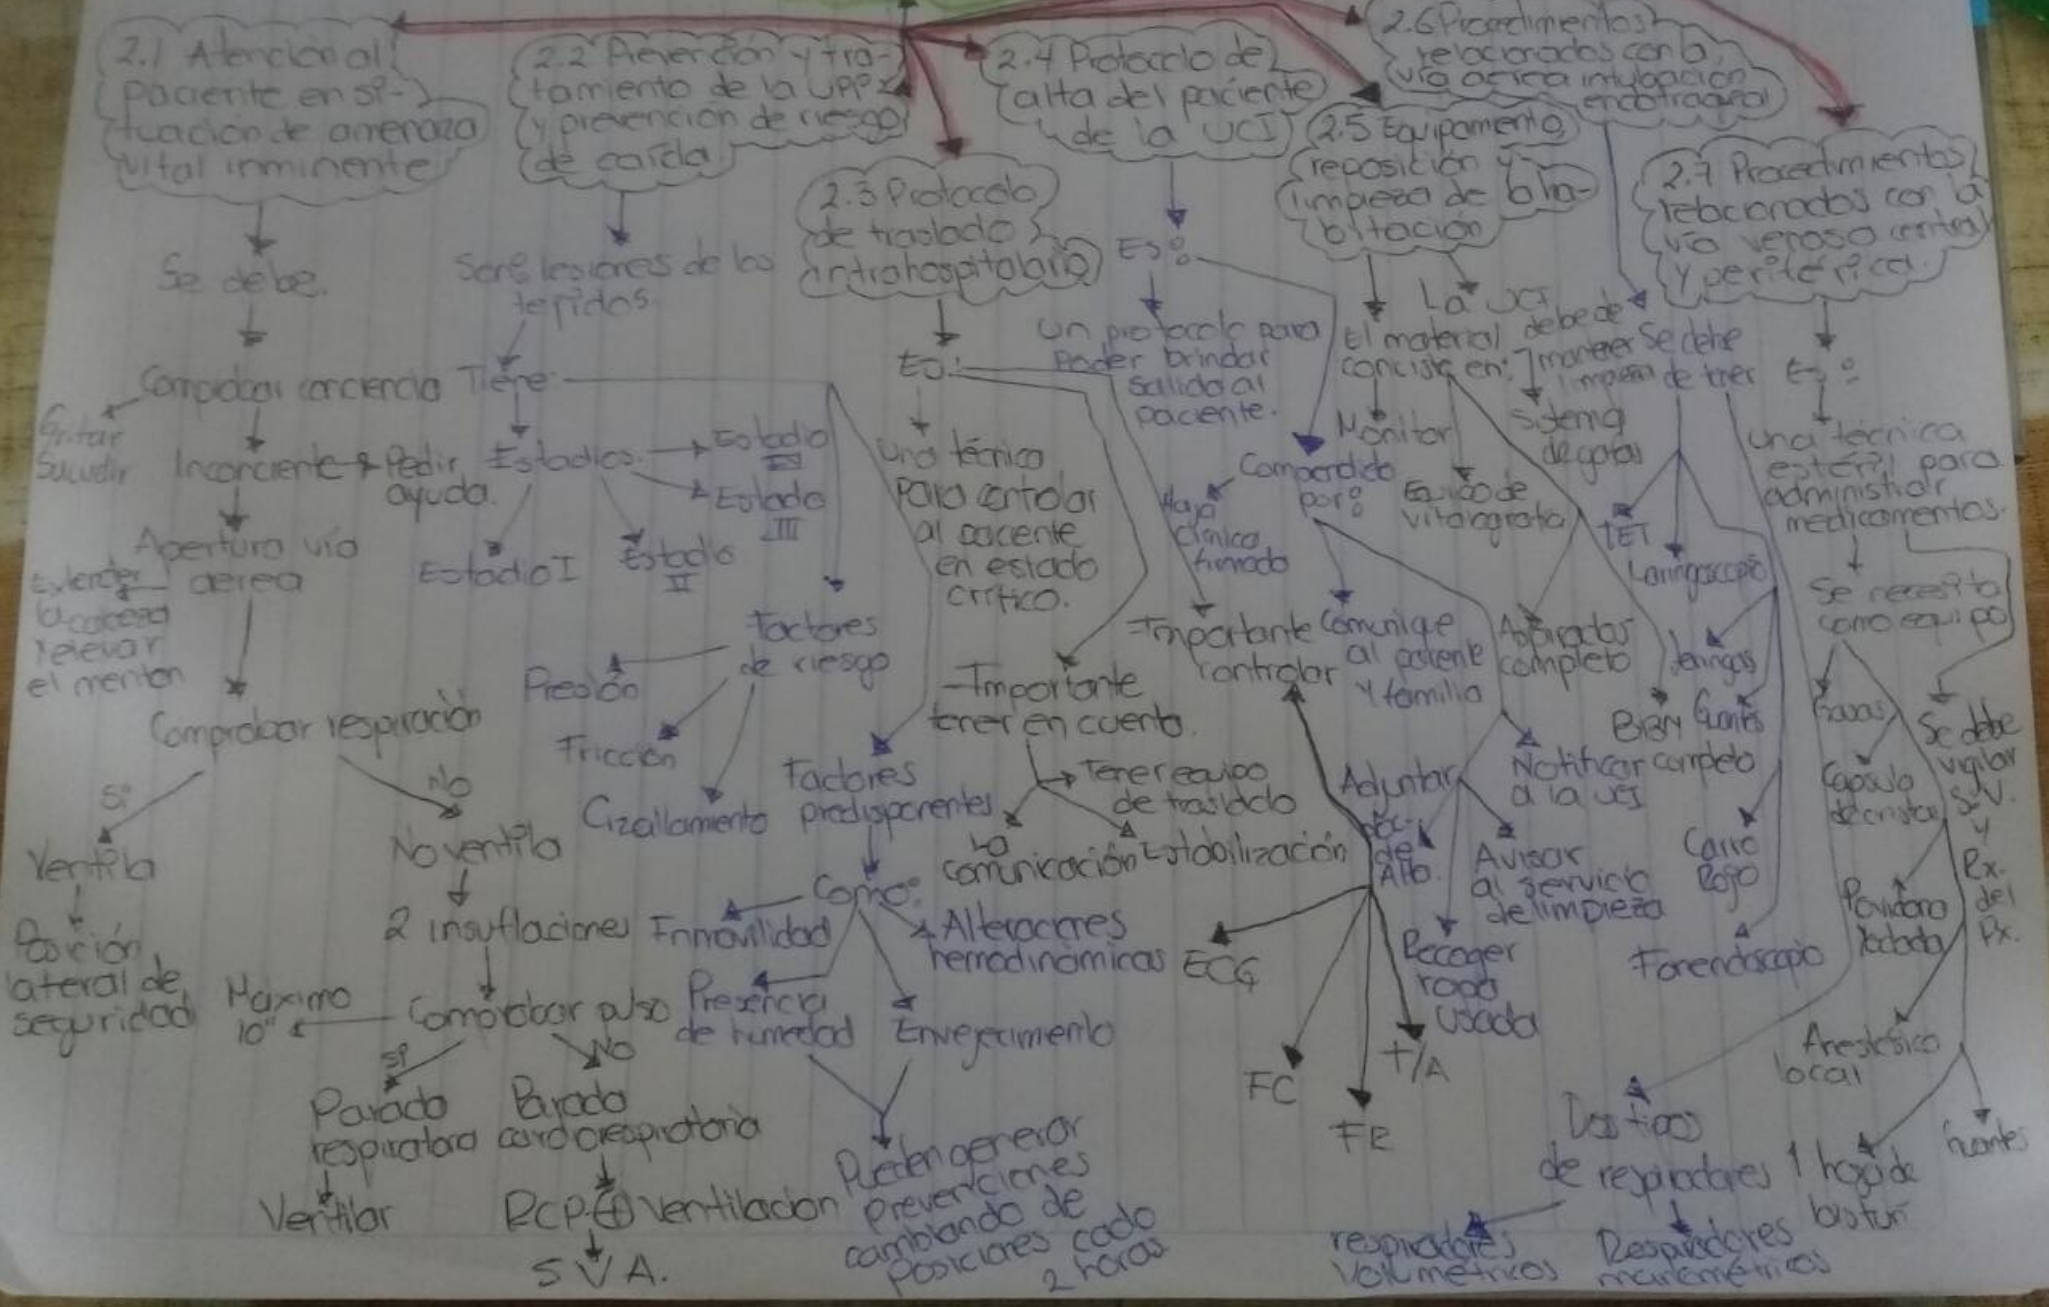 2.1 Atención al
paciente en si-
tuación de amenaza
vital inminente
Se debe.
Comprobar conciencia
Gritar
Sacudir
Inconciente
Pedir
ayuda.
Apertura vía
aerea
Extender
la cabeza
relevar
el menton
Comprobar respiración
Si
No
Ventila
Posición
lateral de
seguridad
No ventila
2 insuflaciones
Comprobar pulso
Maximo
10"
Si
No
Parada
respiratoria
Ventilar
Parada
cardiorespiratoria
RCP + ventilacion
SVA.
2.2 Prevención y tra-
tamiento de la UPP
y prevención de riesgo
de caída.
lesiones de los
tejidos
Tiene
Estadios
Estadio
IV
Estadio
III
Estadio I
Estadio
II
Factores
de riesgo
Presión
Fricción
Cizallamiento
Factores
predisponentes
Como:
Inmovilidad
Alteraciones
hemodinámicas
Presencia
de humedad
Envejecimiento
Pueden generar
prevenciones
cambiando de
posiciones cada
2 horas
2.3 Protocolo
de traslado
intrahospitalario
Es:
Una técnica
para controlar
al paciente
en estado
crítico.
Importante
tener en cuenta.
Tener equipo
de traslado
La
comunicación
Estabilización
2.4 Protocolo de
alta del paciente
de la UCI
Es:
Un protocolo para
Poder brindar
salida al
paciente.
Comprendido
por:
Hoja
clínica
firmado
Importante
controlar
ECG
FC
FR
T/A
Comunique
al paciente
y familia
Adjuntar
de
Alta.
Notificar
a la UCI
Avisar
al servicio
de limpieza
Recoger
ropa
usada
2.5 Equipamento,
reposición y
limpieza de la ha-
bitación
El material
concista en:
La UCI
debe de
mantener
limpieza
Monitor
Equipo de
Sistema
de gotas
Aspirador
completo
BIBN
completo
2.6 Procedimientos
relacionados con la
vía aerea intubación
endotraqueal
Se debe
de tener
TET
Laringoscopio
Jeringas
Guantes
Carro
Rojo
Fonendoscopio
Dos tipos
de respiradores
respiradores
volumétricos
Respiradores
manométricos
2.7 Procedimientos
relacionados con la
vía venosa central
y periférica.
Es:
Una técnica
estéril para
administrar
medicamentos.
Se necesita
como equipo
Gasas
Povidona
Iodada
Anestésico
local
1 hoja de
bisturí
Guantes
Se debe
vigilar
S.V.
y
Rx.
del
Px.